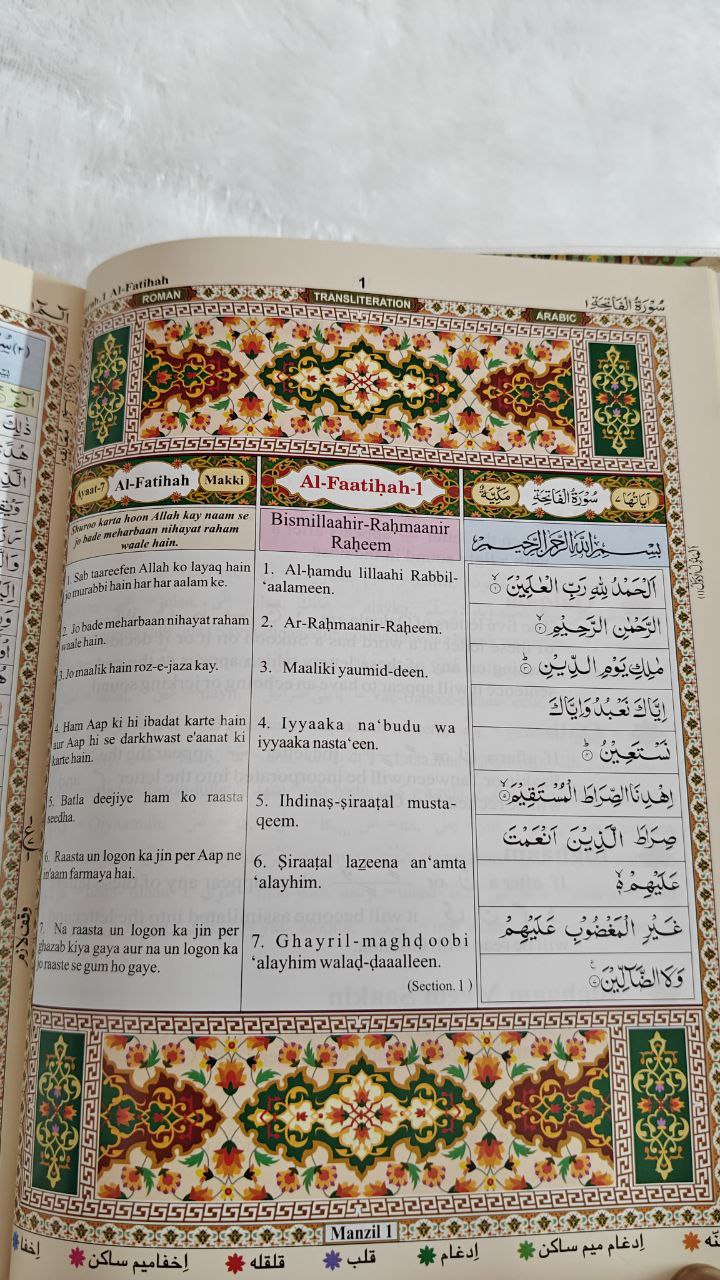 1 Al-Fatihah
1
سُوْرَةُ الْفَاتِحَة ١
ROMAN
TRANSLITERATION
ARABIC
Ayaat-7 Al-Fatihah Makki
Shuroo karta hoon Allah kay naam se
jo bade meharbaan nihayat raham
waale hain.
1. Sab taareefen Allah ko layaq hain
jo murabbi hain har har aalam ke.
2. Jo bade meharbaan nihayat raham
waale hain.
3. Jo maalik hain roz-e-jaza kay.
4. Ham Aap ki hi ibadat karte hain
aur Aap hi se darkhwast e'aanat ki
karte hain.
5. Batla deejiye ham ko raasta
seedha.
6. Raasta un logon ka jin per Aap ne
in'aam farmaya hai.
7. Na raasta un logon ka jin per
ghazab kiya gaya aur na un logon ka
jo raaste se gum ho gaye.
Al-Faatiḥah-1
Bismillaahir-Raḥmaanir
Raḥeem
1. Al-ḥamdu lillaahi Rabbil-
‘aalameen.
2. Ar-Raḥmaanir-Raḥeem.
3. Maaliki yaumid-deen.
4. Iyyaaka na‘budu wa
iyyaaka nasta‘een.
5. Ihdinaṣ-ṣiraaṭal musta-
qeem.
6. Ṣiraaṭal lazeena an‘amta
‘alayhim.
7. Ghayril-maghḍoobi
‘alayhim walaḍ-ḍaaalleen.
(Section. 1)
اٰيَاتُهَا ٧ سُوْرَةُ الْفَاتِحَة مَكِّيَّةٌ
بِسْمِ اللّٰهِ الرَّحْمٰنِ الرَّحِيْمِ
اَلْحَمْدُ لِلّٰهِ رَبِّ الْعٰلَمِيْنَ ۙ‏ ١
الرَّحْمٰنِ الرَّحِيْمِ ۙ‏ ٢
مٰلِكِ يَوْمِ الدِّيْنِ ؕ‏ ٣
اِيَّاكَ نَعْبُدُ وَاِيَّاكَ
نَسْتَعِيْنُ ؕ‏ ٤
اِهْدِنَا الصِّرَاطَ الْمُسْتَقِيْمَ ۙ‏ ٥
صِرَاطَ الَّذِيْنَ اَنْعَمْتَ
عَلَيْهِمْ ۙ ٦
غَيْرِ الْمَغْضُوْبِ عَلَيْهِمْ
وَلَا الضَّآلِّيْنَ ٧
وقف لازم
Manzil 1
ادغام میم ساکن
ادغام
قلب
قلقله
اخفا میم ساکن
اخفا